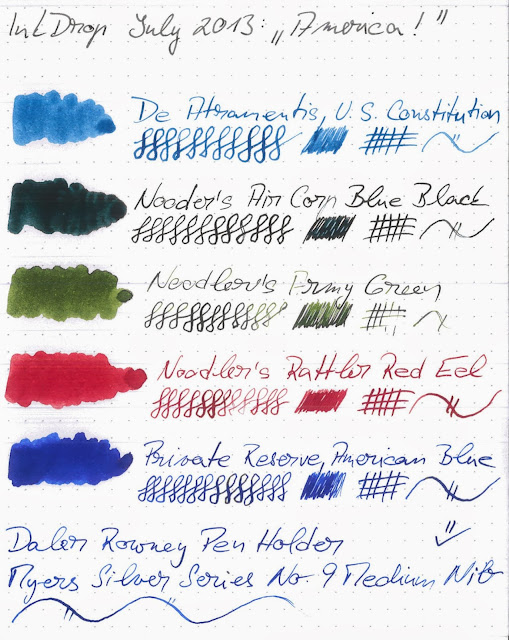 InkDrop July 2013: „America!"
De Atramentis, U.S. Constitution
Nooder's Air Corp Blue Black
Noodler's Army Green
Noodler's Rattler Red Eel
Private Reserve, American Blue
Daler Rowney Pen Holder
Myers Silver Series No. 9 Medium Nib